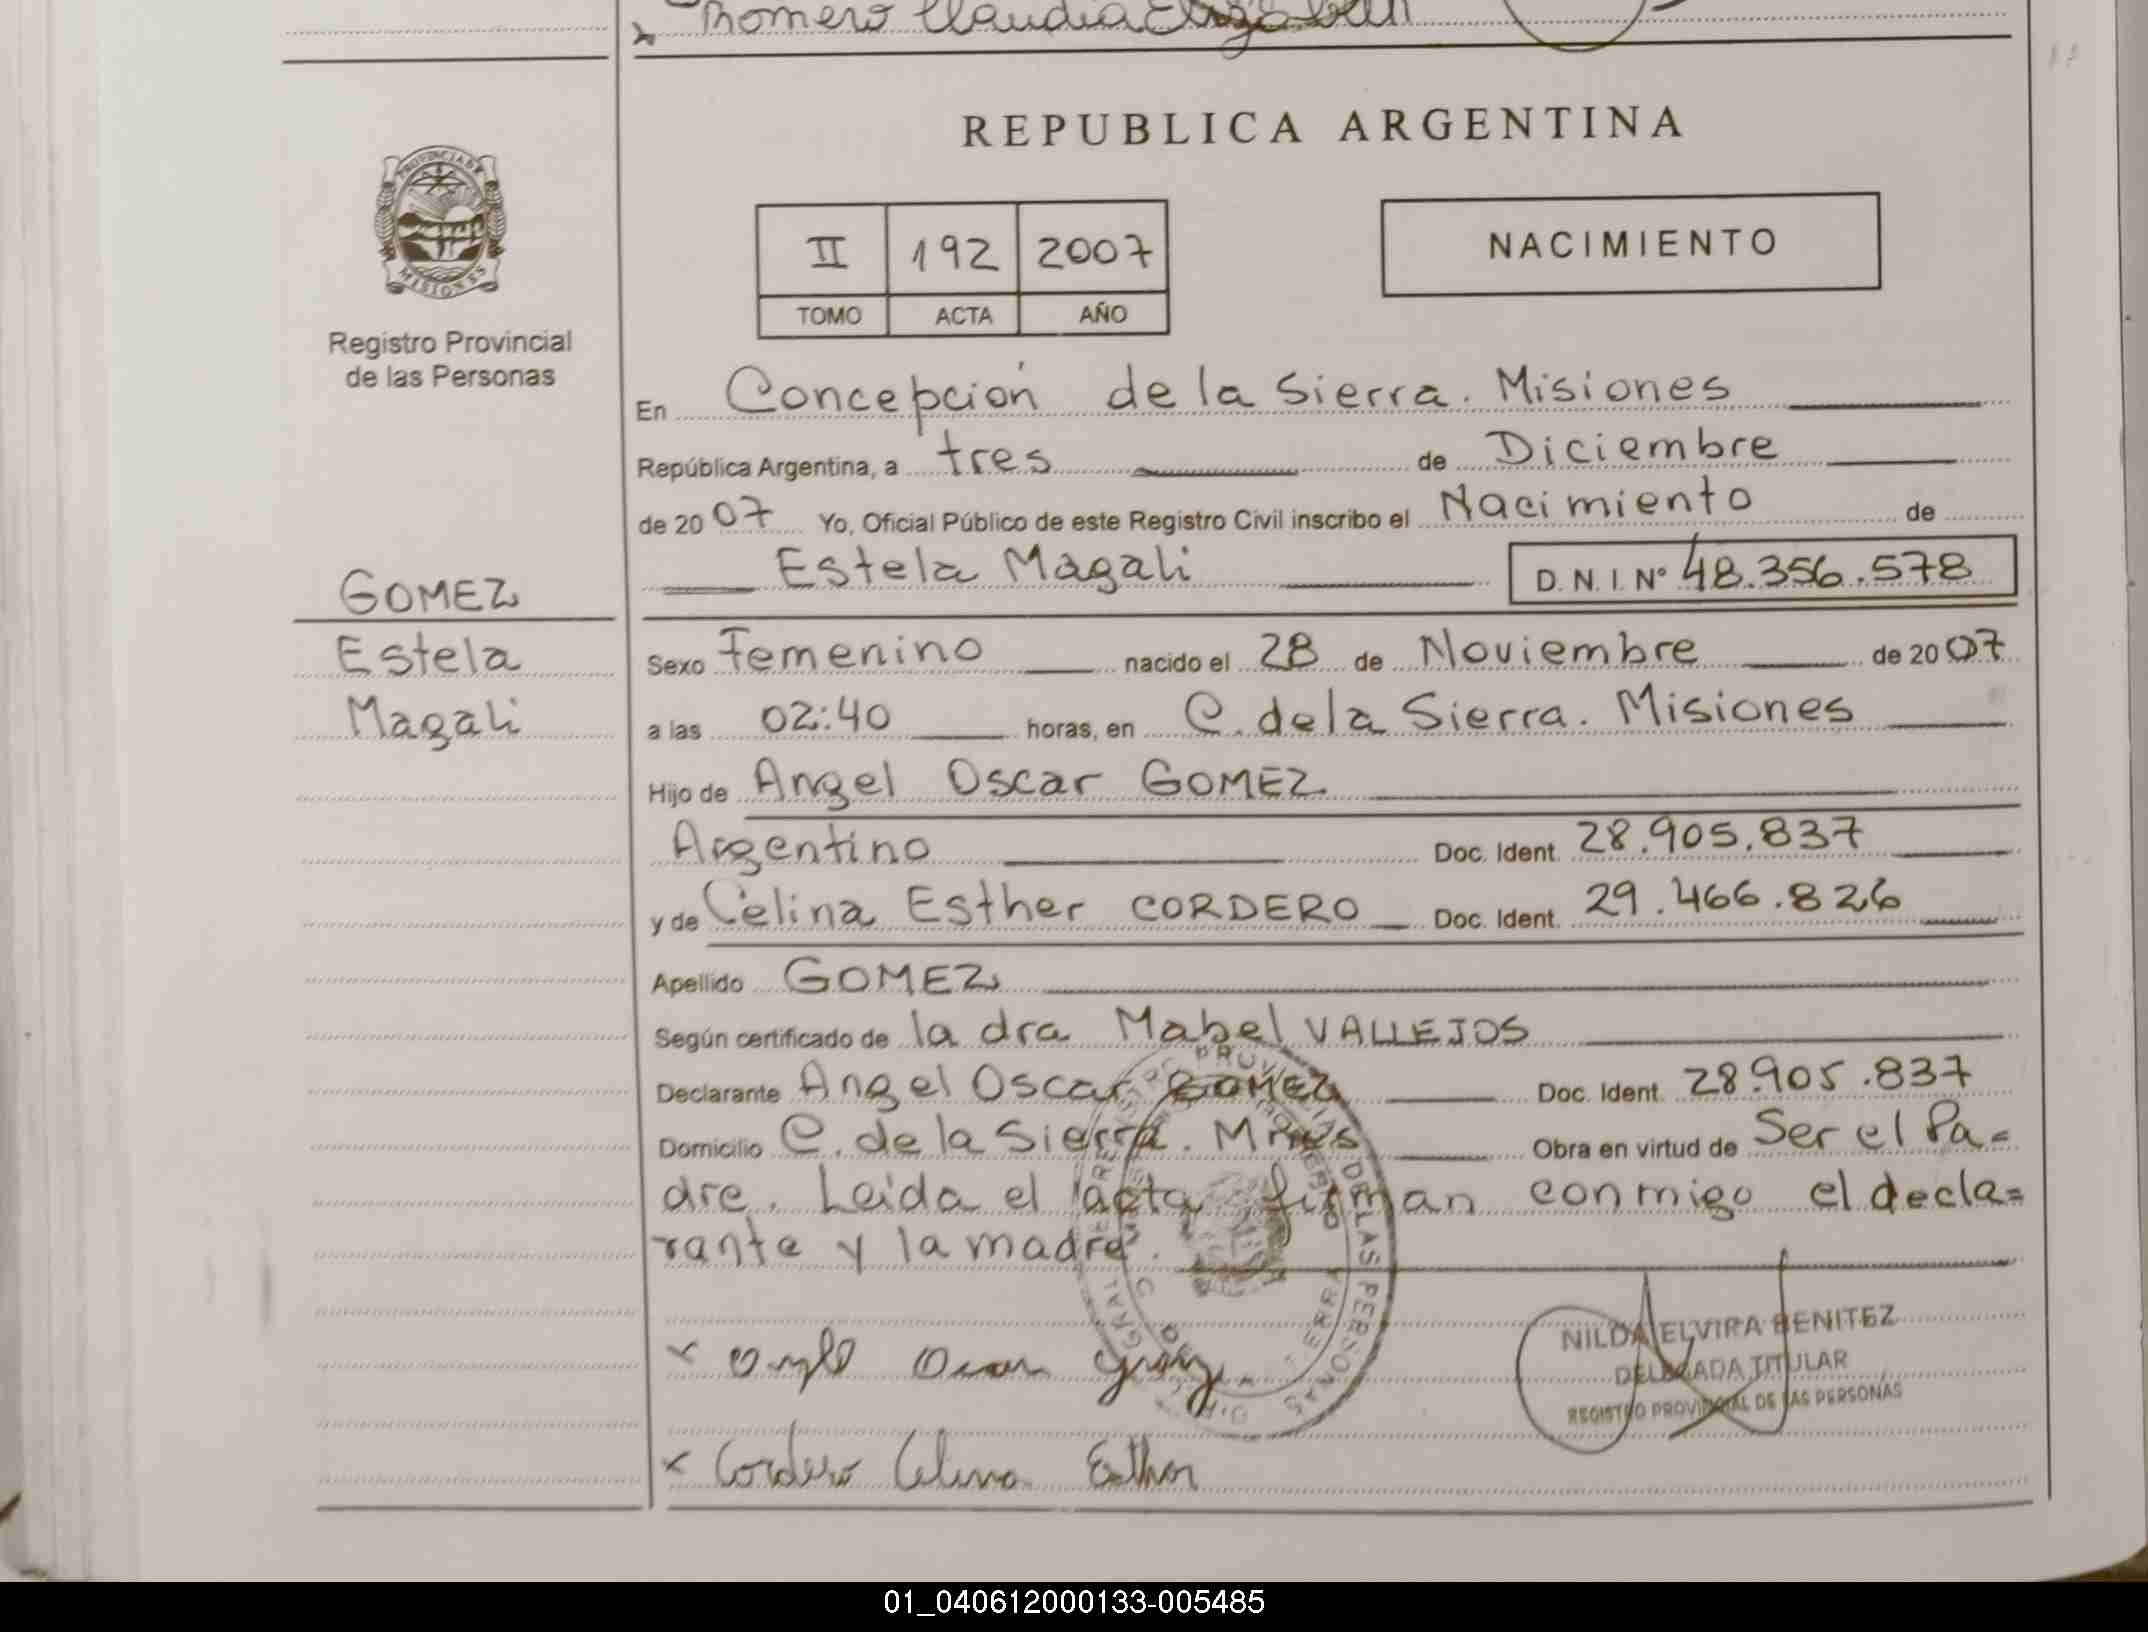 Romero Claudia Elizabeth
REPUBLICA ARGENTINA
PROVINCIA DE
MISIONES
Registro Provincial
de las Personas
II 192 2007
TOMO ACTA AÑO
NACIMIENTO
En Concepción de la Sierra. Misiones
República Argentina, a tres de Diciembre
de 2007 Yo, Oficial Público de este Registro Civil inscribo el Nacimiento de
Estela Magali D.N.I. Nº 48.356.578
GOMEZ
Estela
Magali
Sexo Femenino nacido el 28 de Noviembre de 2007
a las 02:40 horas, en C. de la Sierra. Misiones
Hijo de Angel Oscar GOMEZ
Argentino Doc. Ident. 28.905.837
y de Celina Esther CORDERO Doc. Ident. 29.466.826
Apellido GOMEZ
Según certificado de la dra Mabel VALLEJOS
Declarante Angel Oscar GOMEZ Doc. Ident. 28.905.837
Domicilio C. de la Sierra. Mnes Obra en virtud de Ser el Pa=
dre. Leida el acta firman conmigo el decla=
rante y la madre.
NILDA ELVIRA BENITEZ
DELEGADA TITULAR
REGISTRO PROVINCIAL DE LAS PERSONAS
x Oscar
x Cordero Celina Esther
01_040612000133-005485